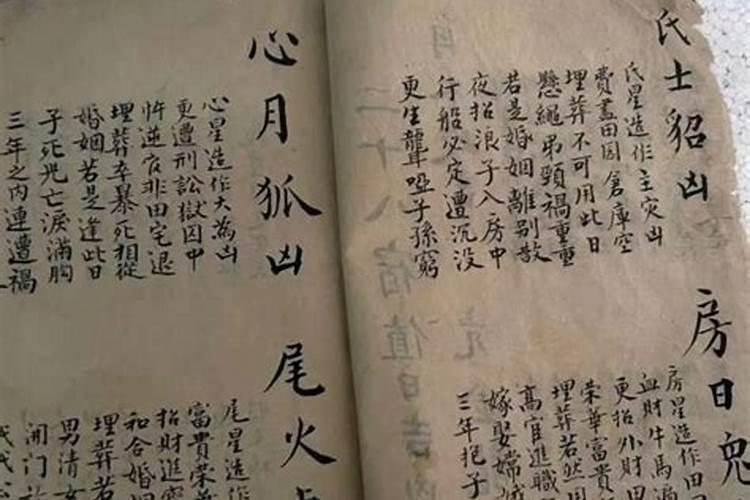 氏士貂凶
氏星造作主灾凶
費盡田园倉庫空
埋葬不可用此日
懸繩弔頸禍重重
若是婚姻離别散
夜招浪子入房中
行船必定遭沉没
更生聾啞子孫窮
房日兔
房星造作田
血財牛馬遍
更招外財田
榮華富貴
埋葬若然用
高官進職
嫁娶嫦娥
三年抱子
二十八宿值日吉凶
心月狐凶
心星造作大為凶
更遭刑訟獄囚中
忤逆官非田宅退
埋葬卒暴死相從
婚姻若是逢此日
子死児亡淚滿胸
三年之内連遭禍
尾火
尾星造作
富貴榮
招財進寶
和合婚姻
埋葬若
男清女
開門
代代